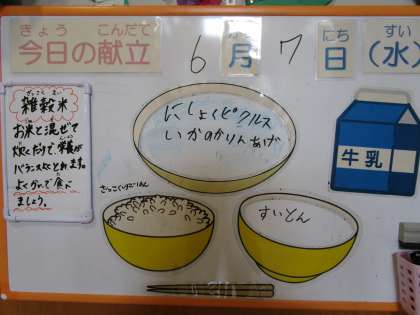 きょう こんだて
今日の献立
6 月 7 日 (水)
にち すい
ざっこくまい
雑穀米
お米と混ぜて
炊くだけで、栄養が
バランスよくとれます。
よくかんで食べ
ましょう。
にしょくピクルス
いかのかりんあげ
牛乳
ざっこくごはん
すいとん